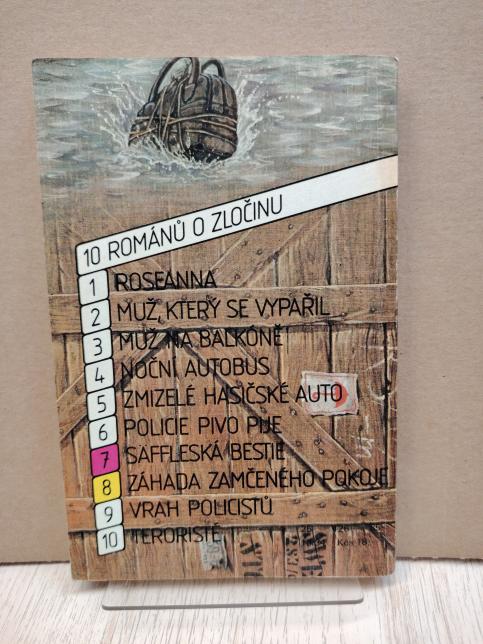 10 ROMÁNŮ O ZLOČINU
1 ROSEANNA
2 MUŽ, KTERÝ SE VYPAŘIL
3 MUŽ NA BALKÓNĚ
4 NOČNÍ AUTOBUS
5 ZMIZELÉ HASIČSKÉ AUTO
6 POLICIE PIVO PIJE
7 SAFFLESKÁ BESTIE
8 ZÁHADA ZAMČENÉHO POKOJE
9 VRAH POLICISTŮ
10 TERORISTÉ